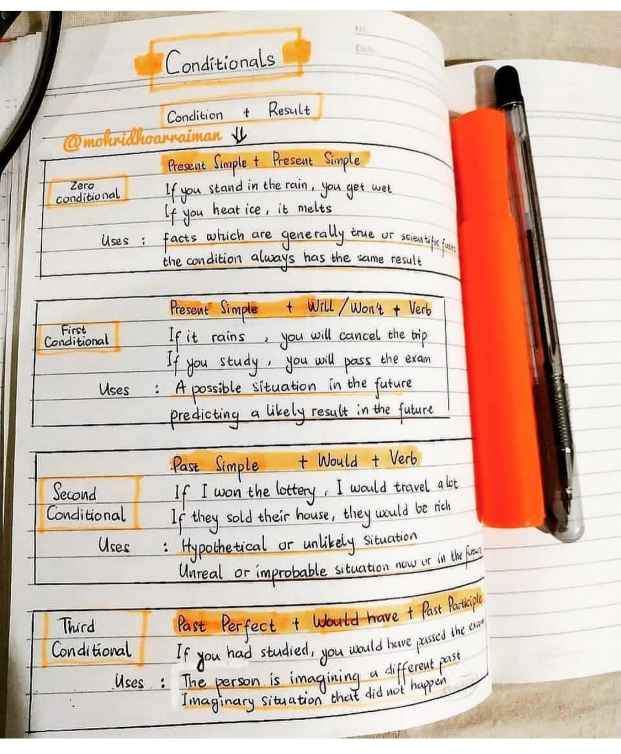 Conditionals
Condition + Result
@mohridhoarraiman
Present Simple + Present Simple
Zero
conditional
If you stand in the rain, you get wet
If you heat ice, it melts
Uses : facts which are generally true or scientific
the condition always has the same result
Present Simple + Will/Won't + Verb
First
Conditional
If it rains , you will cancel the trip
If you study, you will pass the exam
Uses : A possible situation in the future
predicting a likely result in the future
Past Simple + Would + Verb
Second
Conditional
If I won the lottery, I would travel a lot
If they sold their house, they would be rich
Uses : Hypothetical or unlikely situation
Unreal or improbable situation now or in the future
Past Perfect + Would have + Past Participle
Third
Conditional
If you had studied, you would have passed the exam
Uses : The person is imagining a different past
Imaginary situation that did not happen